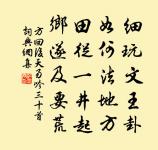 細玩文王卦
如何法地方
田從一井起
鄉遂及要荒
方回後天易吟三十首
詞典網集